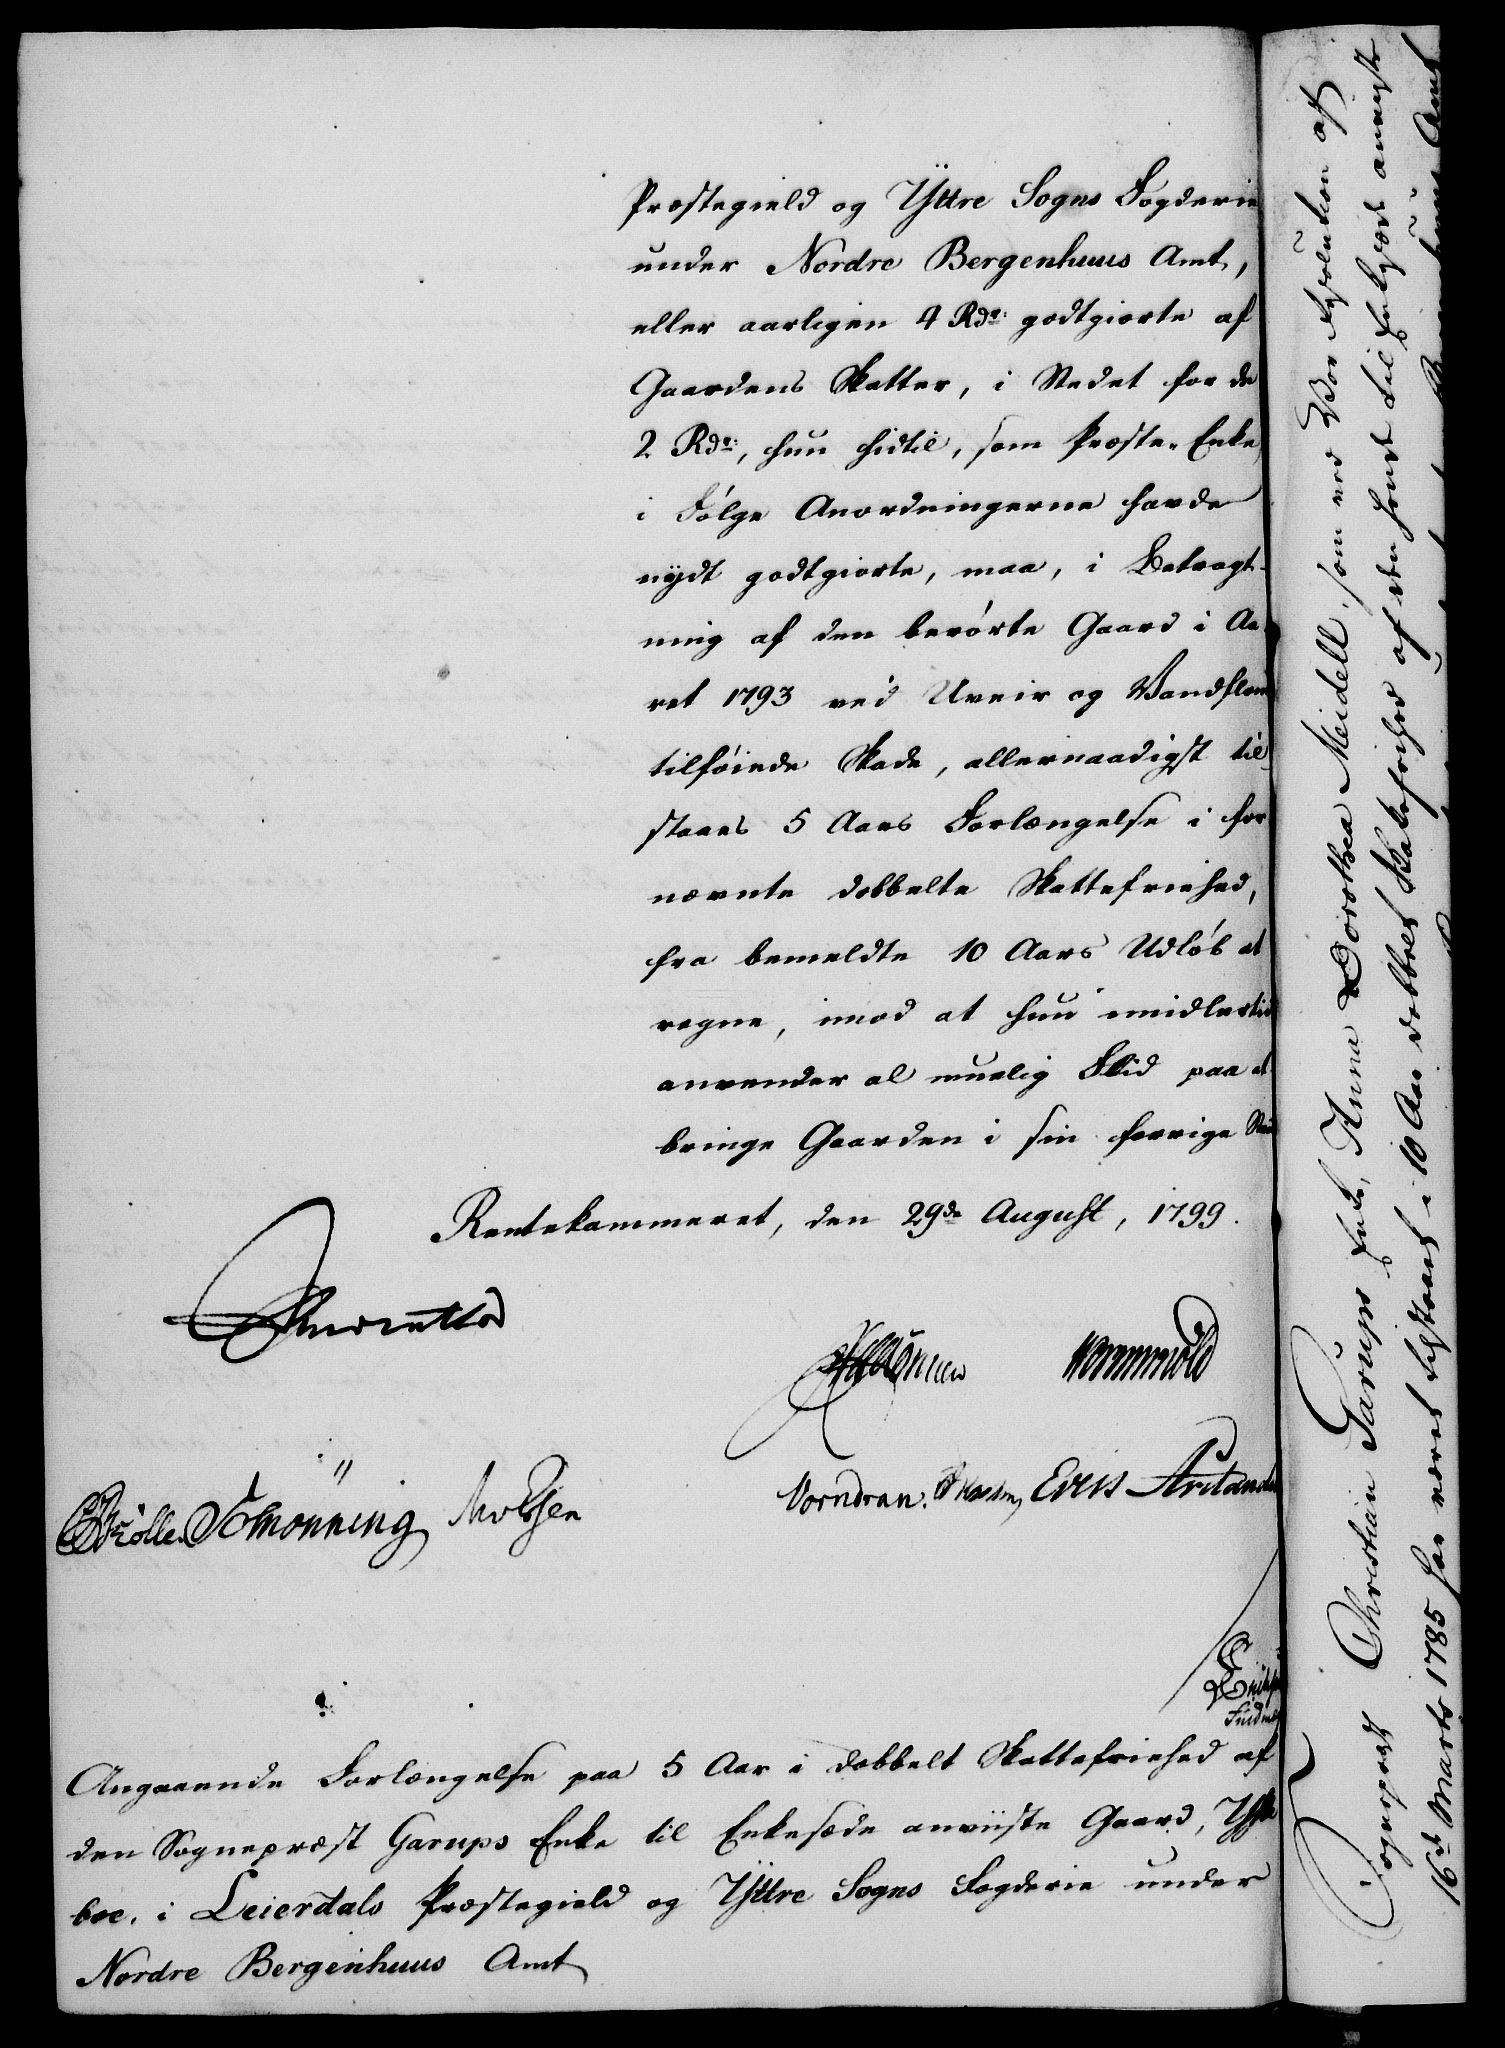 Præstegield og Yttre Sogns Fogderie
under Nordre Bergenhuus Amt,
eller aarligen 4 Rdr: godtgiorte af
Gaardens Skatter, i Stedet for de
2 Rdr:, hun hidtil, som Præste-Enke,
i Følge Anordningerne havde
nydt godtgiorte, maa, i Betragt-
ning af den berørte Gaard i Aa-
ret 1793 ved Uveir og Vandflom
tilføiede Skade, allernaadigst til-
staaes 5 Aars Forlængelse i for
nævnte dobbelte Skattefriehed,
fra bemeldte 10 Aars Udløb at
regne, imod at hun imidlertid
anvender al muelig Flid paa at
bringe Gaarden i sin forrige
Rentekammeret, den 29de August, 1799.
Wormskiold
Schønning
Vorndran. Evers
Angaaende Forlængelse paa 5 Aar i dobbelt Skattefriehed af
den Sognepræst Garups Enke til Enkesæde anviiste Gaard,
boe, i Leierdals Præstegield og Yttre Sogns Fogderie under
Nordre Bergenhuus Amt
Sognepræst Christian Garups Enke, Anna Dorothea Meidell, som ved Vor Resolution af
16de Marts 1785 har været tilstaaet i 10 Aar dobbelt Skatefrihed af den hende til Enkesæde anviiste